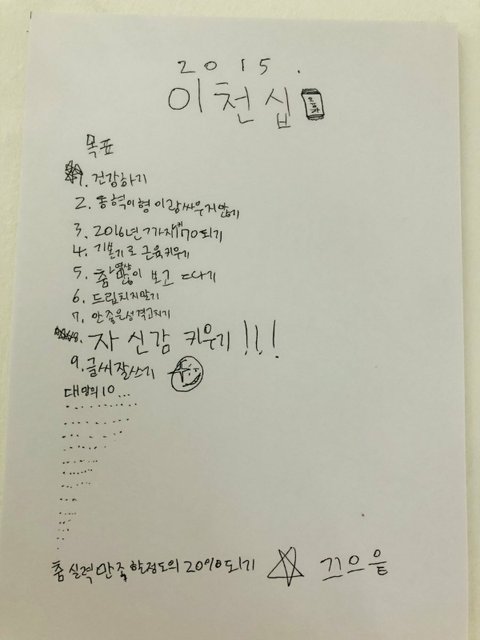 2015.
이천십
목표
1. 건강하기
2. 동혁이형이랑싸우지않기
3. 2016년 7가지 170되기
4. 기본기로 근육키우기
5. 춤영상많이 보고 따기
6. 드립치지말기
7. 안좋은성격고치기
8. 자신감 키우기!!!
9. 글씨잘쓰기
대망의10...
춤실력만족할정도의 200%되기 끄으읕